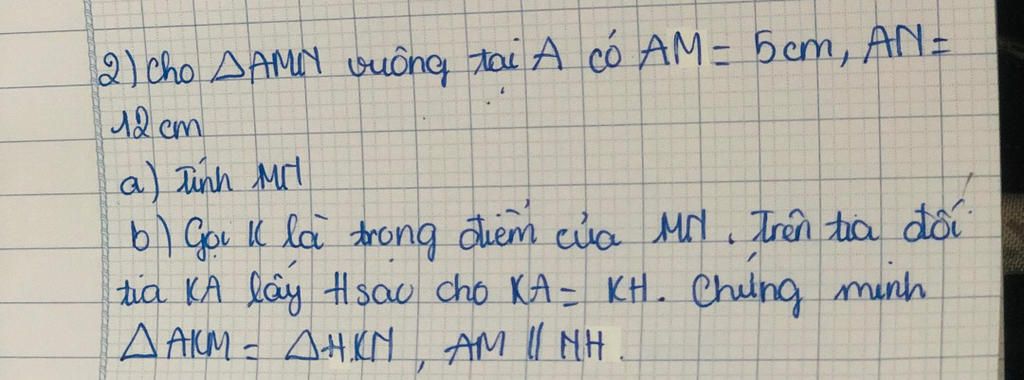 2) Cho △AMN vuông tại A có AM = 5cm, AN =
12 cm
a) Tính MN
b) Gọi K là trọng điểm của MN. Trên tia đối
tia KA lấy H sao cho KA = KH. Chứng minh
△AKM = △HKN, AM // NH.